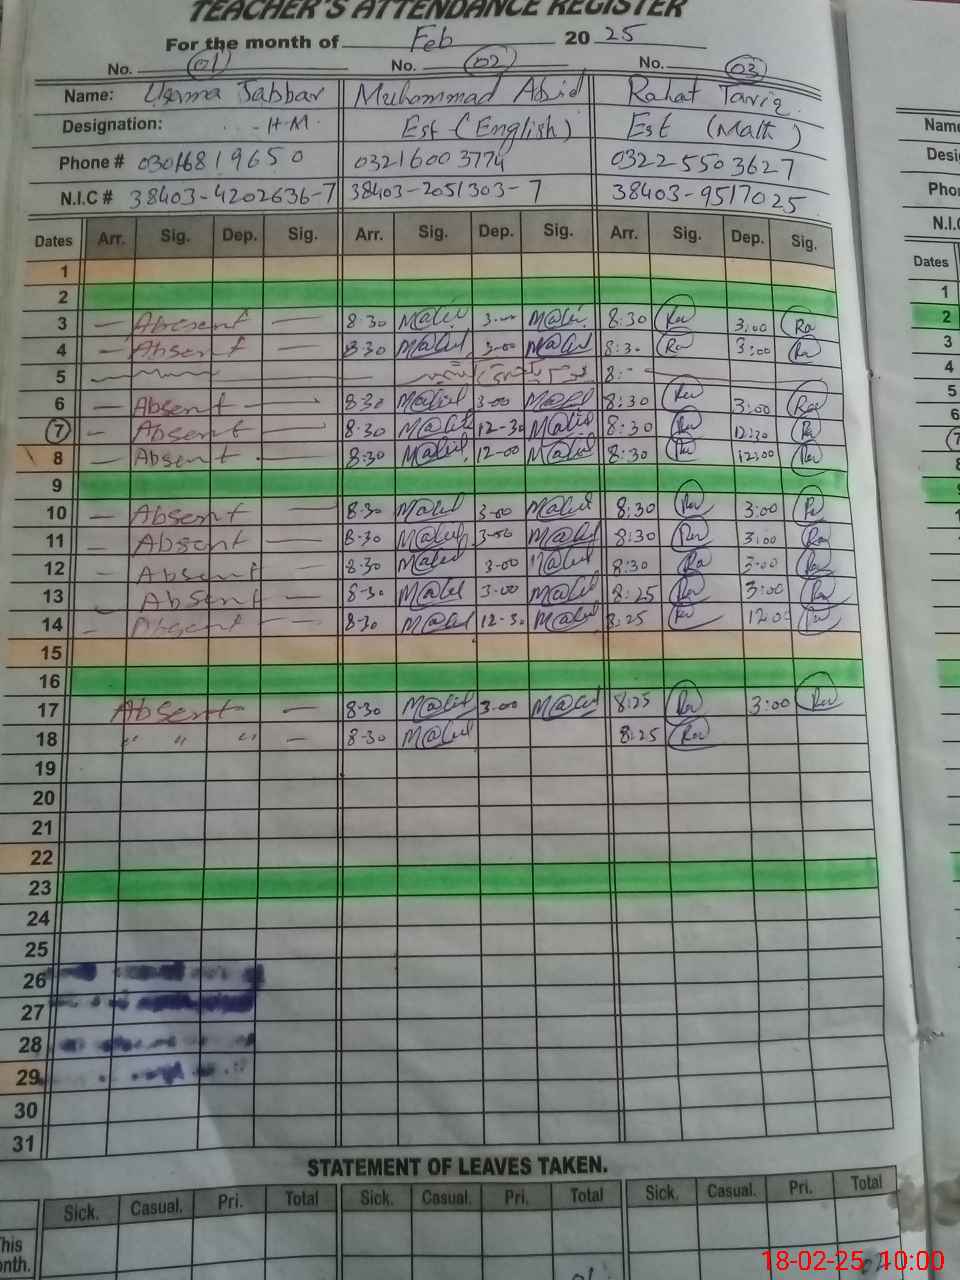 TEACHER'S ATTENDANCE REGISTER
For the month of Feb 20 25
No. 01 No. 02 No. 03
Name: Usama Jabbar Muhammad Abid Rahat Tariq
Designation: H.M. Est (English) Est (Math)
Phone # 03016819650 03216003774 03225503627
N.I.C # 38403-4202636-7 38403-2051303-7 38403-9517025
Dates Arr. Sig. Dep. Sig. Arr. Sig. Dep. Sig. Arr. Sig. Dep. Sig.
1
2
3 — Abesent — 8-30 M@bid 3-00 M@bid 8:30 Ra 3:00 Ra
4 — Absent — 8-30 M@bid 3-00 M@bid 8:30 Ra 3:00 Ra
5 8:
6 — Absent — 8-30 M@bid 3-00 M@bid 8:30 Ra 3:00 Ra
7 — Absent — 8-30 M@bid 12-30 M@bid 8:30 Ra 12:30 Ra
8 — Absent — 8-30 M@bid 12-00 M@bid 8:30 Ra 12:00 Ra
9
10 — Absent — 8-30 M@bid 3-00 M@bid 8:30 Ra 3:00 Ra
11 — Absent — 8-30 M@bid 3-00 M@bid 8:30 Ra 3:00 Ra
12 — Absent — 8-30 M@bid 3-00 M@bid 8:30 Ra 3:00 Ra
13 — Absent — 8-30 M@bid 3-00 M@bid 8:25 Ra 3:00 Ra
14 — Absent — 8-30 M@bid 12-30 M@bid 8:25 Ra 12:00 Ra
15
16
17 Absent — 8-30 M@bid 3-00 M@bid 8:25 Ra 3:00 Ra
18 " " " — 8-30 M@bid 8:25 Ra
19
20
21
22
23
24
25
26
27
28
29
30
31
STATEMENT OF LEAVES TAKEN.
Sick. Casual. Pri. Total Sick. Casual. Pri. Total Sick. Casual. Pri. Total
This
onth.
18-02-25 10:00
Name
Desi
Phor
N.I.C
Dates
1
2
3
4
5
6
7
8